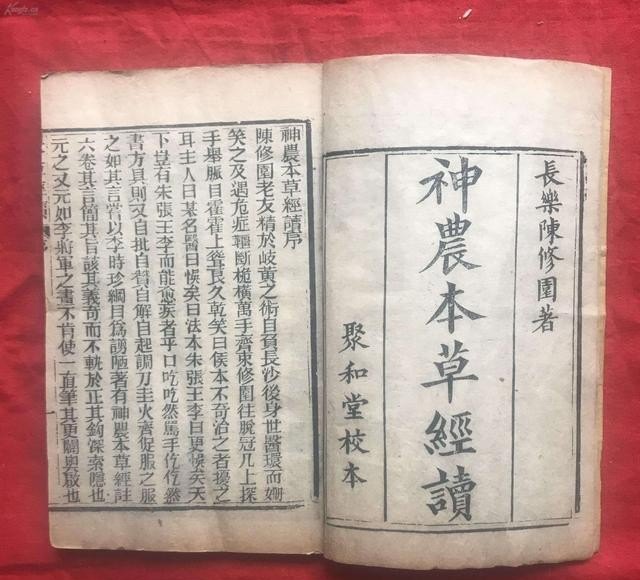 長樂陳修園著
神農本草經讀
聚和堂校本
神農本草經讀序
陳修園老友精於岐黃之術自負長沙後身世醫環而姍
笑之及遇危症輒斷桅橫萬手齊束修園往脫冠几上探
手舉脈目霍霍上聳良久乾笑曰侯本不奇治之者擾之
耳主人曰某名醫曰悞矣曰法本朱張王李曰更悞矣天
下豈有朱張王李而能愈疾者乎口吃吃然罵手仡仡然
書方具則又自批自贊自解自起調刀圭火齊促服之服
之如其言嘗以李時珍綱目為謭陋著有神農本草經註
六卷其言簡其旨該其義奇而不軼於正其鉤深索隱也
元之又元如李將軍之畫不肯使一直筆其更闢奧啟也